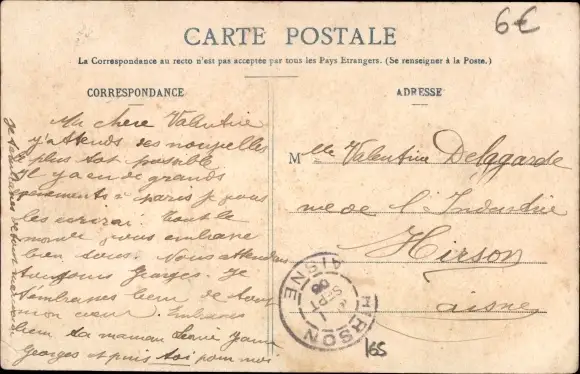 6€
CARTE POSTALE
La Correspondance au recto n'est pas acceptée par tous les Pays Etrangers. (Se renseigner à la Poste.)
CORRESPONDANCE
ADRESSE
Ma chere Valentine
j'attends des nouvelles
le plus tot possible
Il y a eu de grands
a paris je vous
les ecrirai. Tout le
monde vous embrasse
bien tous. Nous attendons
toujours Georges. Je
t'embrasse bien de tout
mon cœur. Embrasse
bien ta maman
Georges et puis toi pour moi
Mlle Valentine Delagarde
rue de l'Industrie
Hirson
aisne
HIRSON
AISNE
SEPT
08
165